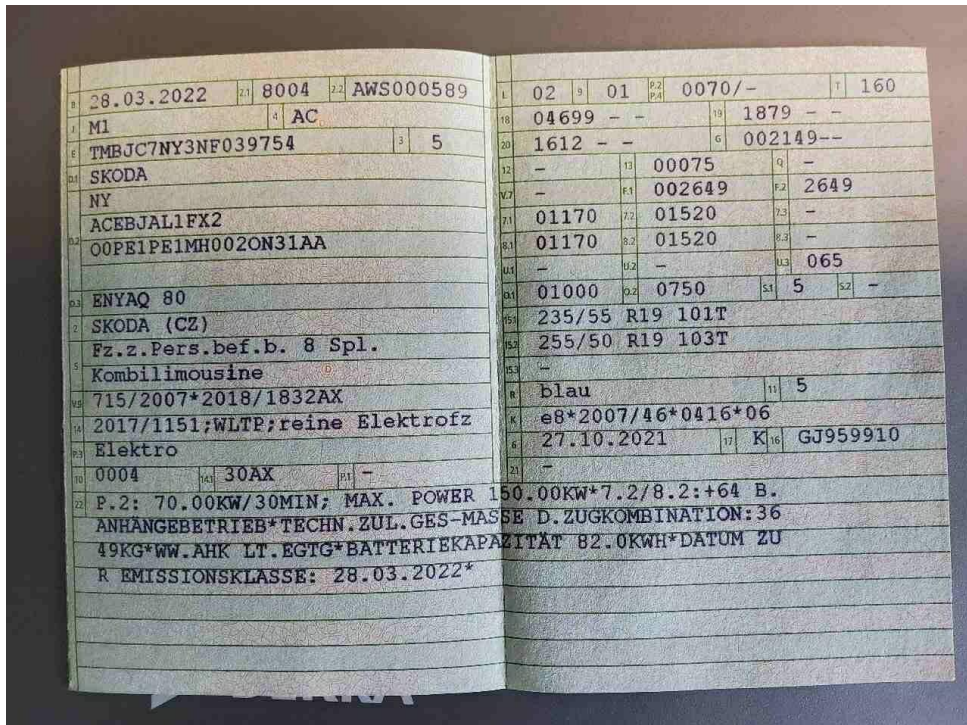 B 28.03.2022 2.1 8004 2.2 AWS000589
J M1 4 AC
E TMBJC7NY3NF039754 3 5
D.1 SKODA
NY
D.2 ACEBJAL1FX2
O0PE1PE1MH002ON31AA
D.3 ENYAQ 80
2 SKODA (CZ)
5 Fz.z.Pers.bef.b. 8 Spl.
Kombilimousine
V.9 715/2007*2018/1832AX
14 2017/1151;WLTP;reine Elektrofz
P.3 Elektro
10 0004 14.1 30AX P.1 -
L 02 9 01 P.2 P.4 0070/- T 160
18 04699 - - 19 1879 - -
20 1612 - - G 002149--
12 - 13 00075 Q -
V.7 - F.1 002649 F.2 2649
7.1 01170 7.2 01520 7.3 -
8.1 01170 8.2 01520 8.3 -
U.1 - U.2 - U.3 065
O.1 01000 O.2 0750 S.1 5 S.2 -
15.1 235/55 R19 101T
15.2 255/50 R19 103T
15.3 -
R blau 11 5
K e8*2007/46*0416*06
6 27.10.2021 17 K 16 GJ959910
21 -
22 P.2: 70.00KW/30MIN; MAX. POWER 150.00KW*7.2/8.2:+64 B.
ANHÄNGEBETRIEB*TECHN.ZUL.GES-MASSE D.ZUGKOMBINATION:36
49KG*WW.AHK LT.EGTG*BATTERIEKAPAZITÄT 82.0KWH*DATUM ZU
R EMISSIONSKLASSE: 28.03.2022*